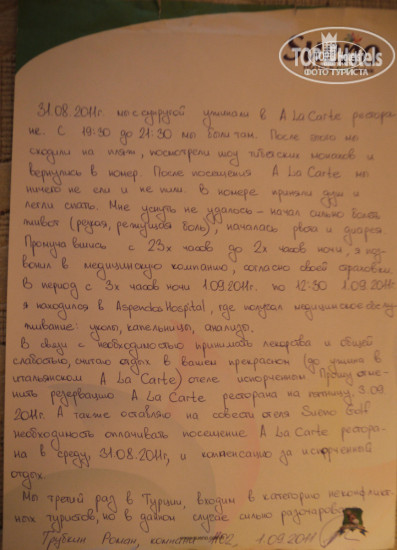 Sueno
TOPHotels
ФОТО ТУРИСТА
31.08.2011г. мы с супругой ужинали в A La Carte рестора-
не. С 19:30 до 21:30 мы были там. После этого мы
сходили на пляж, посмотрели шоу тибетских монахов и
вернулись в номер. После посещения A La Carte мы
ничего не ели и не пили. В номере приняли душ и
легли спать. Мне уснуть не удалось – начал сильно болеть
живот (резкая, режущая боль), началась рвота и диарея
Промучившись с 23х часов до 2х часов ночи, я поз-
вонил в медицинскую компанию, согласно своей страховки.
В период с 3х часов ночи 1.09.2011г. по 12:30 1.09.2011г
я находился в Aspendos Hospital, где получал медицинское обслу-
живание: уколы, капельницы, анализы.
В связи с необходимостью принимать лекарства и общей
слабостью, считаю отдых в вашем прекрасном (до ужина в
итальянском A La Carte) отеле испорченным. Прошу отме-
нить резервацию A La Carte ресторана на пятницу, 3.09.
2011г. А также оставляю на совести отеля Sueno Golf
необходимость оплачивать посещение A La Carte рестора-
на в среду, 31.08.2011г, и компенсацию за испорченный
отдых.
Мы третий раз в Турции, входим в категорию неконфликт-
ных туристов, но в данном случае сильно разочарованы
Трубкин Роман, комната 1.09.2011